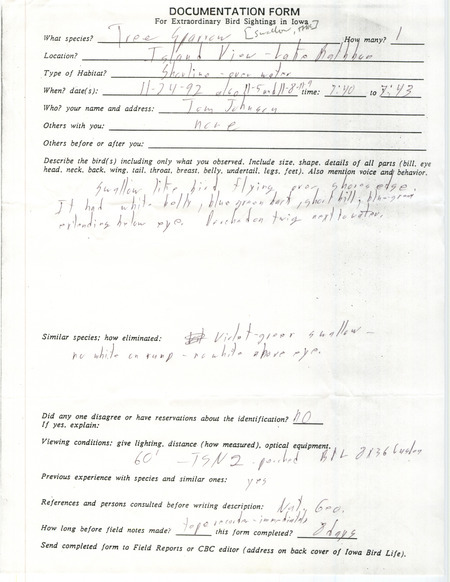 DOCUMENTATION FORM
For Extraordinary Bird Sightings in Iowa
What species? Tree Sparrow [Swallow, ] How many? 1
Location? Island View - Lake Rathbun
Type of Habitat? Shoreline - over water
When? date(s): 11-24-92 also 11-5 and 11-8-11-9 time: 7:40 to 7:43
Who? your name and address: Tom Johnson
Others with you: none
Others before or after you:
Describe the bird(s) including only what you observed. Include size, shape, details of all parts (bill, eye
head, neck, back, wing, tail, throat, breast, belly, undertail, legs, feet). Also mention voice and behavior.
Swallow like bird flying over shores edge.
It had white belly, blue green back, short bill, blue-green
extending below eye. Perched on twig next to water.
Similar species; how eliminated: Violet-green swallow -
no white on rump - no white above eye.
Did any one disagree or have reservations about the identification? NO
If yes, explain:
Viewing conditions: give lighting, distance (how measured), optical equipment.
60' perched B&L 8x36 Custom
Previous experience with species and similar ones: yes
References and persons consulted before writing description: Natl Geo.
How long before field notes made? tape recorder - immediate this form completed? 8 days
Send completed form to Field Reports or CBC editor (address on back cover of Iowa Bird Life).